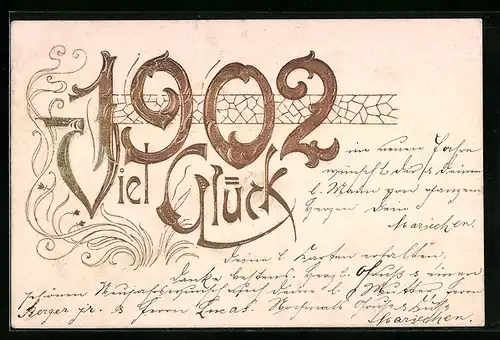 1902
Viel Glück
im neuen Jahre
wünscht dir & deinem
l. Mann von ganzem
Herzen dein
Mariechen.
Deine l. Karten erhalten,
danke bestens. Herzl. Gruss & einen
schönen Neujahrswunsch auch deine l. Mutter, Herrn
Berger jr. & Herrn Lucas. Nochmals Gruss & Kuss
Mariechen.